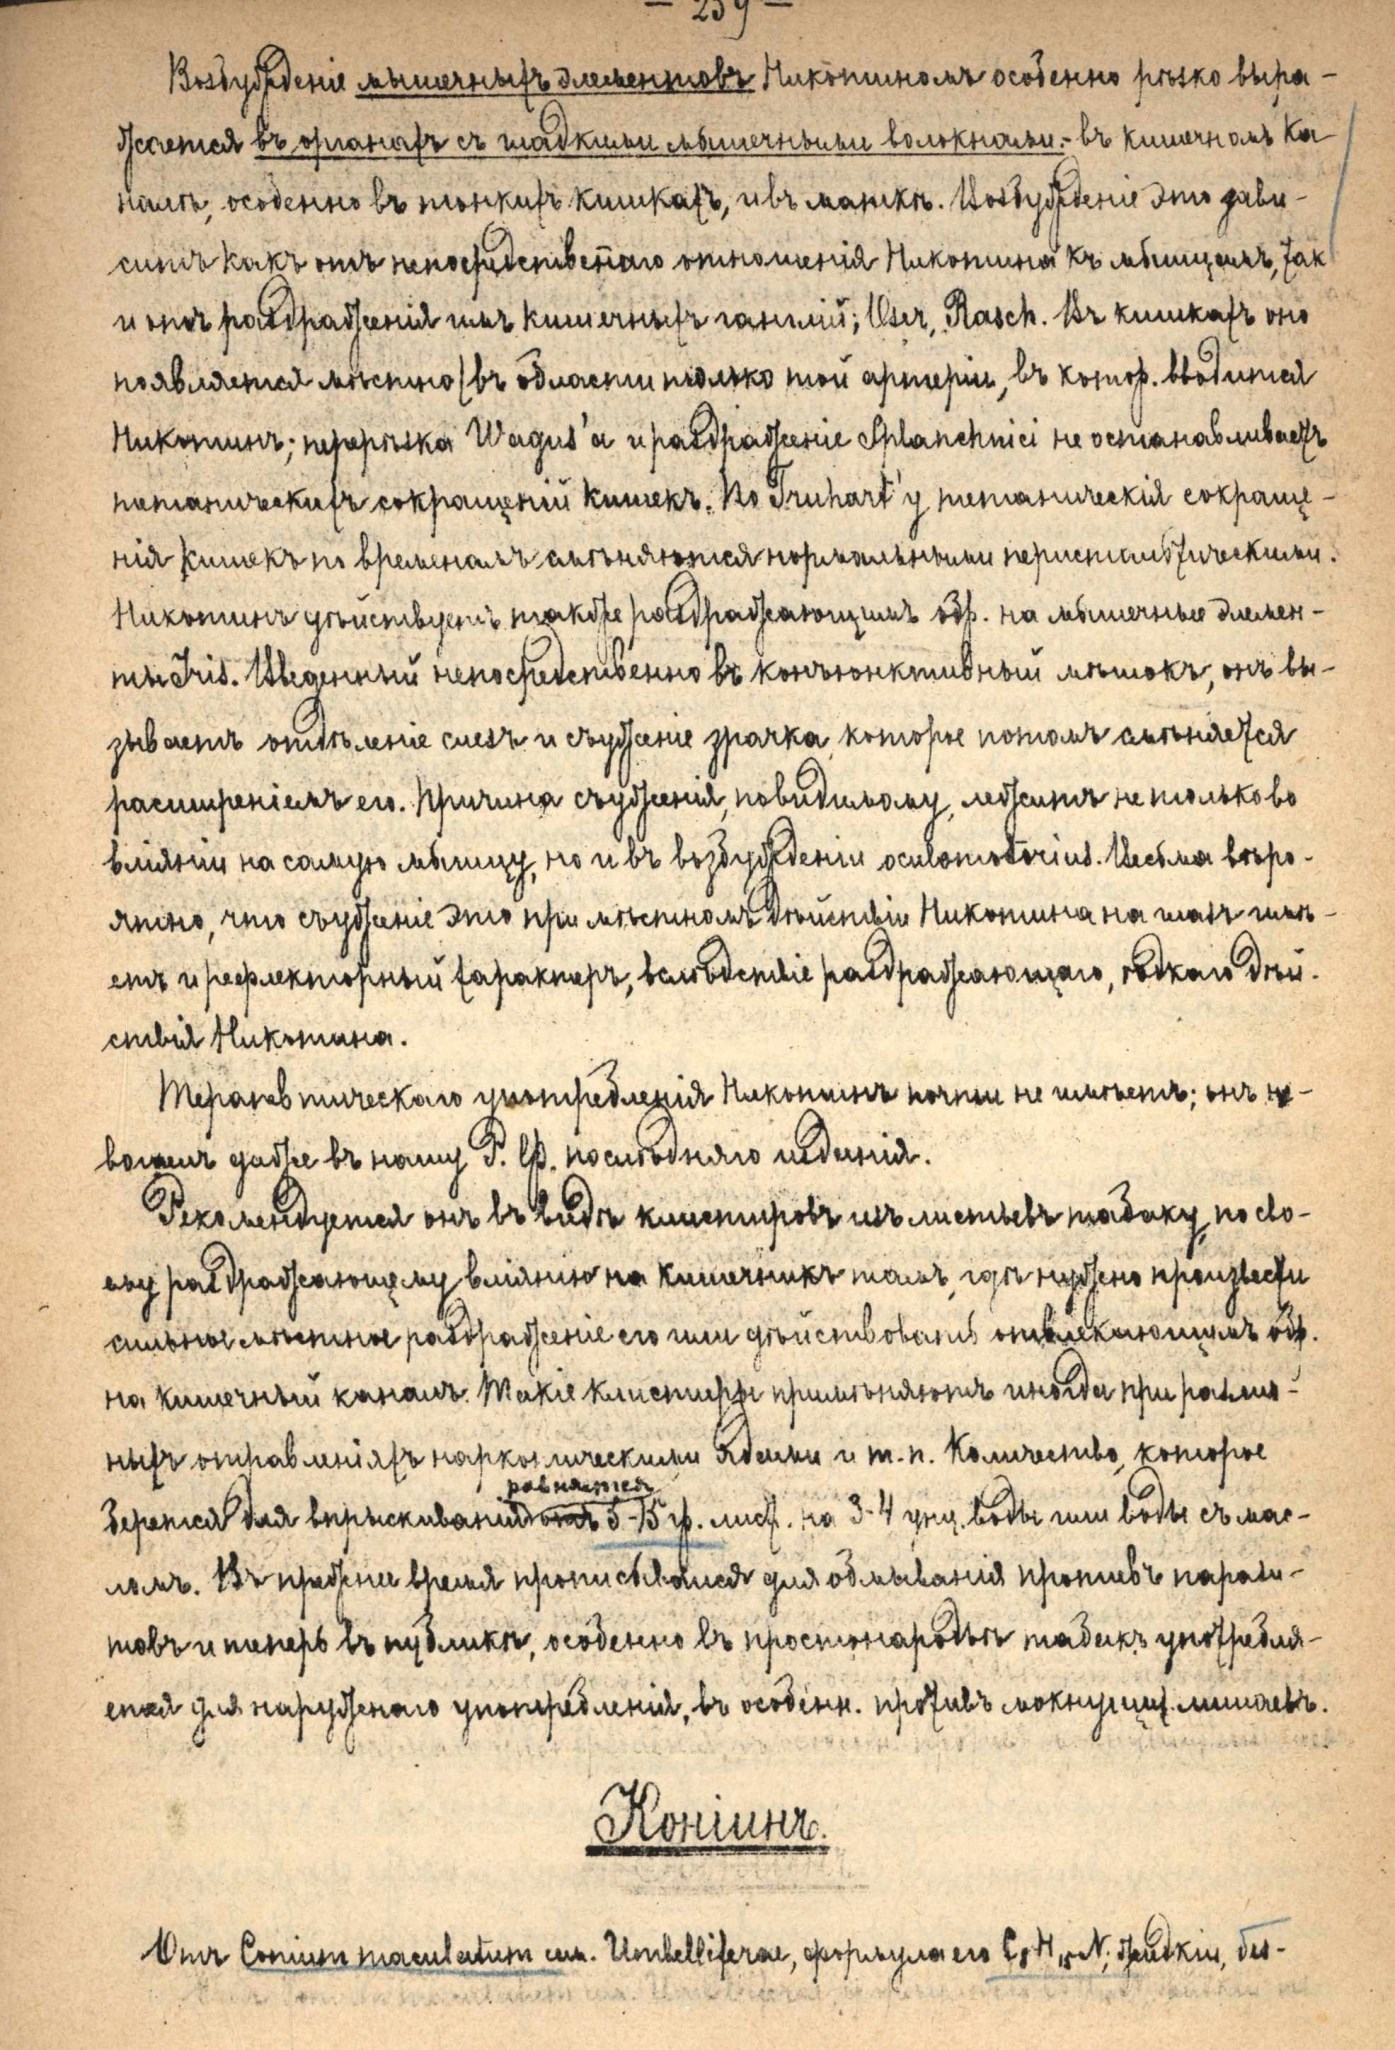 — 259 —
Возбужденіе мышечныхъ элементовъ Никотиномъ особенно рѣзко выра-
жается въ органахъ съ гладкими мышечными волокнами:- въ кишечномъ ка-
налѣ, особенно въ тонкихъ кишкахъ, и въ маткѣ. Возбужденіе это зави-
ситъ какъ отъ непосредственнаго отношенія Никотина къ мышцамъ, так
и отъ раздраженія имъ кишечныхъ ганглій; Oser, Rasch. Въ кишкахъ оно
появляется мѣстно въ области только той артеріи, въ котор. вводится
Никотинъ; перерѣзка Wagus'a и раздраженіе Splanchnici не останавливаетъ
тетаническихъ сокращеній кишекъ. По Truhart'у тетаническія сокраще-
нія кишекъ по временамъ смѣняются нормальными перистальтическими.
Никотинъ дѣйствуетъ также раздражающимъ обр. на мышечные элемен-
ты Iris. Введенный непосредственно въ конъюнктивный мѣшокъ, онъ вы-
зываетъ отдѣленіе слезъ и съуженіе зрачка, которое потомъ смѣняется
расширеніемъ его. Причина съуженія, повидимому, лежитъ не только во
вліяніи на самую мышцу, но и въ возбужденіи oculomotorius. Весьма вѣро-
ятно, что съуженіе это при мѣстномъ дѣйствіи Никотина на глазъ имѣ-
етъ и рефлекторный характеръ, вслѣдствіе раздражающаго, ѣдкаго дѣй-
ствія Никотина.
Терапевтическаго употребленія Никотинъ почти не имѣетъ; онъ не-
вошелъ даже въ нашу Р. Ф. послѣдняго изданія.
Рекомендуется онъ въ видѣ клистировъ изъ листьевъ табаку, по сво-
ему раздражающему вліянію на кишечникъ тамъ, гдѣ нужно произвести
сильное мѣстное раздраженіе его или дѣйствовать отвлекающимъ обр.
на кишечный каналъ. Такіе клистиры примѣняютъ иногда при различ-
ныхъ отравленіяхъ наркотическими ядами и т. п. Количество, которое
равняется
берется для впрыскиванія 5-15 гр. лист. на 3-4 унц. воды или воды съ мас-
ломъ. Въ прежнее время прописывался для обмыванія противъ парази-
товъ и теперь въ публикѣ, особенно въ простонародьѣ табакъ употребля-
ется для наружнаго употребленія, въ особенн. противъ мокнущихъ лишаевъ.
Коніинъ.
Отъ Conium maculatum сем. Umbelliferae, формула его C₈H₁₅N; жидкій, без-